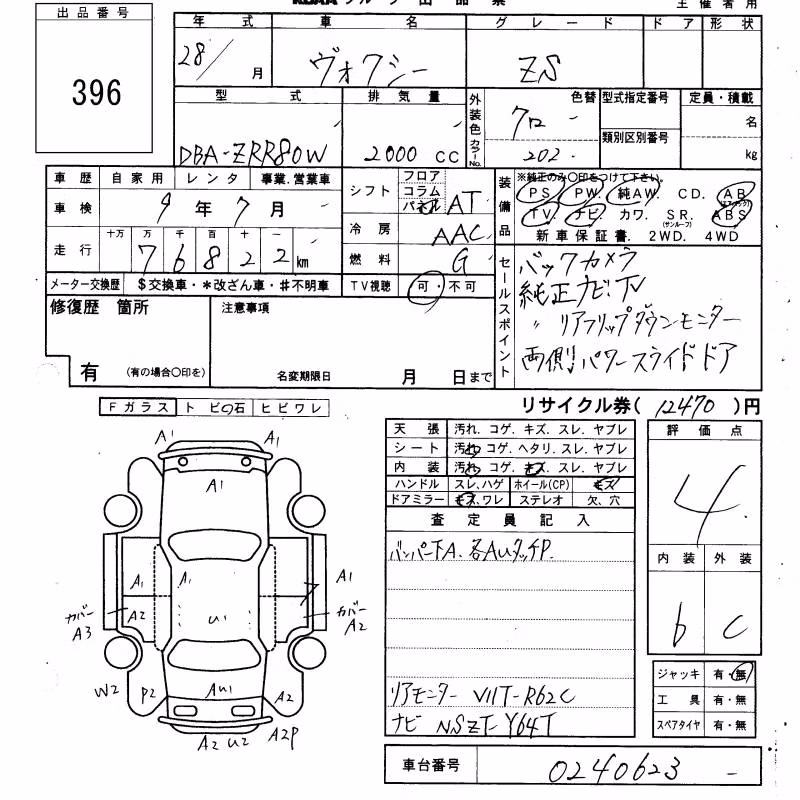 出品番号
396
KCAA グループ 出品票
主催者用
年式 車名 グレード ドア 形状
28/ 月 ヴォクシー ZS
型式 排気量 外装色 色替 型式指定番号 定員・積載
クロー 名
DBA-ZRR80W 2000 CC カラーNo. 202. 類別区別番号 kg
車歴 自家用 レンタ 事業.営業車
車検 9年7月
走行 十万 万 千 百 十 一
76822 km
メーター交換歴 $交換車・*改ざん車・#不明車
シフト フロア コラム パネル AT
冷房 AAC
燃料 G
TV視聴 可・不可
装備品 ※純正のみ〇印をつけて下さい。
PS. PW. 純AW. CD. AB(エアバック)
TV. ナビ カワ. SR.(サンルーフ) ABS
新車保証書. 2WD. 4WD
セールスポイント
バックカメラ
純正ナビ.TV
〃 リアフリップダウンモニター
両側パワースライドドア
修復歴 箇所
有 (有の場合〇印を)
注意事項
名変期限日 月 日まで
リサイクル券( 12470 )円
Fガラス トビ石 ヒビワレ
天張 汚れ. コゲ. キズ. スレ. ヤブレ
シート 汚れ. コゲ. ヘタリ. スレ. ヤブレ
内装 汚れ. コゲ. キズ. スレ. ヤブレ
ハンドル スレ、ハゲ ホイール(CP) キズ
ドアミラー キズ、ワレ ステレオ 欠、穴
査定員記入
バンパー下A. 各AuタッチP.
リアモニター V11T-R62C
ナビ NSZT-Y64T
評価点
4
内装 外装
b C
ジャッキ 有・無
工具 有・無
スペアタイヤ 有・無
車台番号 0240623
A1 A1
A1
A1 A1 A1
カバー A3 A2 U1 カバー A2
W2 P2 AU1 A2
A2 U2 A2P